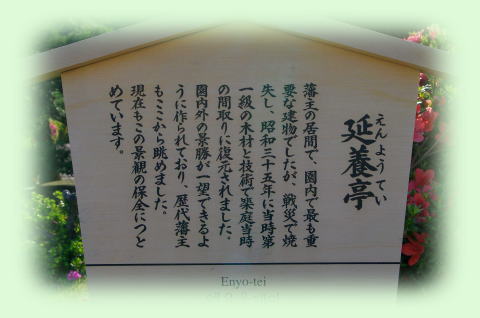 延養亭
えんようてい
藩主の居間で、園内で最も重
要な建物でしたが、戦災で焼
失し、昭和三十五年に当時第
一級の木材と技術で築庭当時
の間取りに復元されました。
園内外の景勝が一望できるよ
うに作られており、歴代藩主
もここから眺めました。
現在もこの景観の保全につと
めています。
Enyo-tei